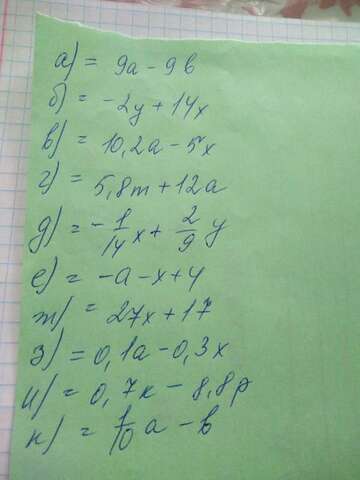 а) = 9a - 9b
б) = -2y + 14x
в) = 10,2a - 5x
г) = 5,8m + 12a
д) = - 1/14 x + 2/9 y
е) = -a - x + 4
ж) = 27x + 17
з) = 0,1a - 0,3x
и) = 0,7к - 8,8p
к) = 1/10 a - b